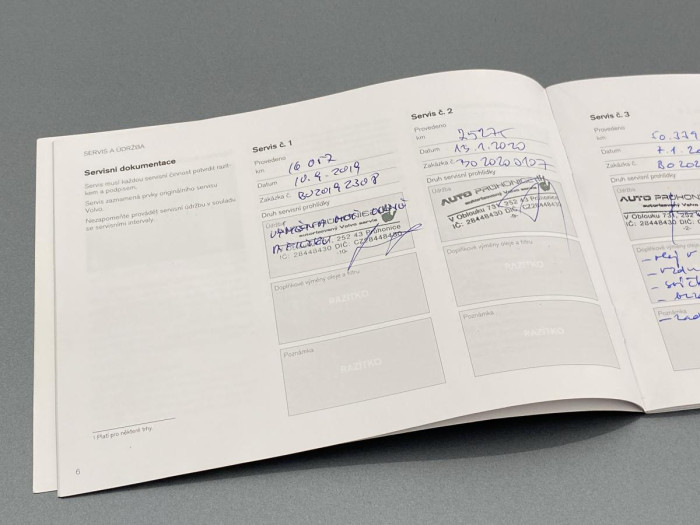 SERVIS A ÚDRŽBA
Servisní dokumentace
Servis musí každou servisní činnost potvrdit razít-
kem a podpisem.
Servis zaznamená prvky originálního servisu
Volvo.
Nezapomeňte provádět servisní údržbu v souladu
se servisními intervaly.
1 Platí pro některé trhy.
6
Servis č. 1
Provedeno
km 16 017
Datum 10.4.2019
Zakázka č. BO2019 2308
Druh servisní prohlídky
Údržba
AUTO PRŮHONICE
autorizovaný Volvo servis
252 43 Průhonice
IČ: 28448430 DIČ: CZ28448430
Doplňkové výměny oleje a filtru
RAZÍTKO
Poznámka
RAZÍTKO
Servis č. 2
Provedeno
km
Datum 13.1.2020
Zakázka č. BO20200107
Druh servisní prohlídky
Údržba
AUTO PRŮHONICE
autorizovaný Volvo servis
V Oblouku 731, 252 43 Průhonice
IČ: 28448430 DIČ: CZ28448430
Doplňkové výměny oleje a filtru
RAZÍTKO
Poznámka
RAZÍTKO
Servis č. 3
Provedeno
km 50.379
Datum
Zakázka č. BO202
Druh servisní prohlídky
Údržba
AUTO PRŮHONIC
autorizovaný Volvo
V Oblouku 731, 252 43
IČ: 28448430 DIČ:
Doplňkové
- olej v
Poznámka